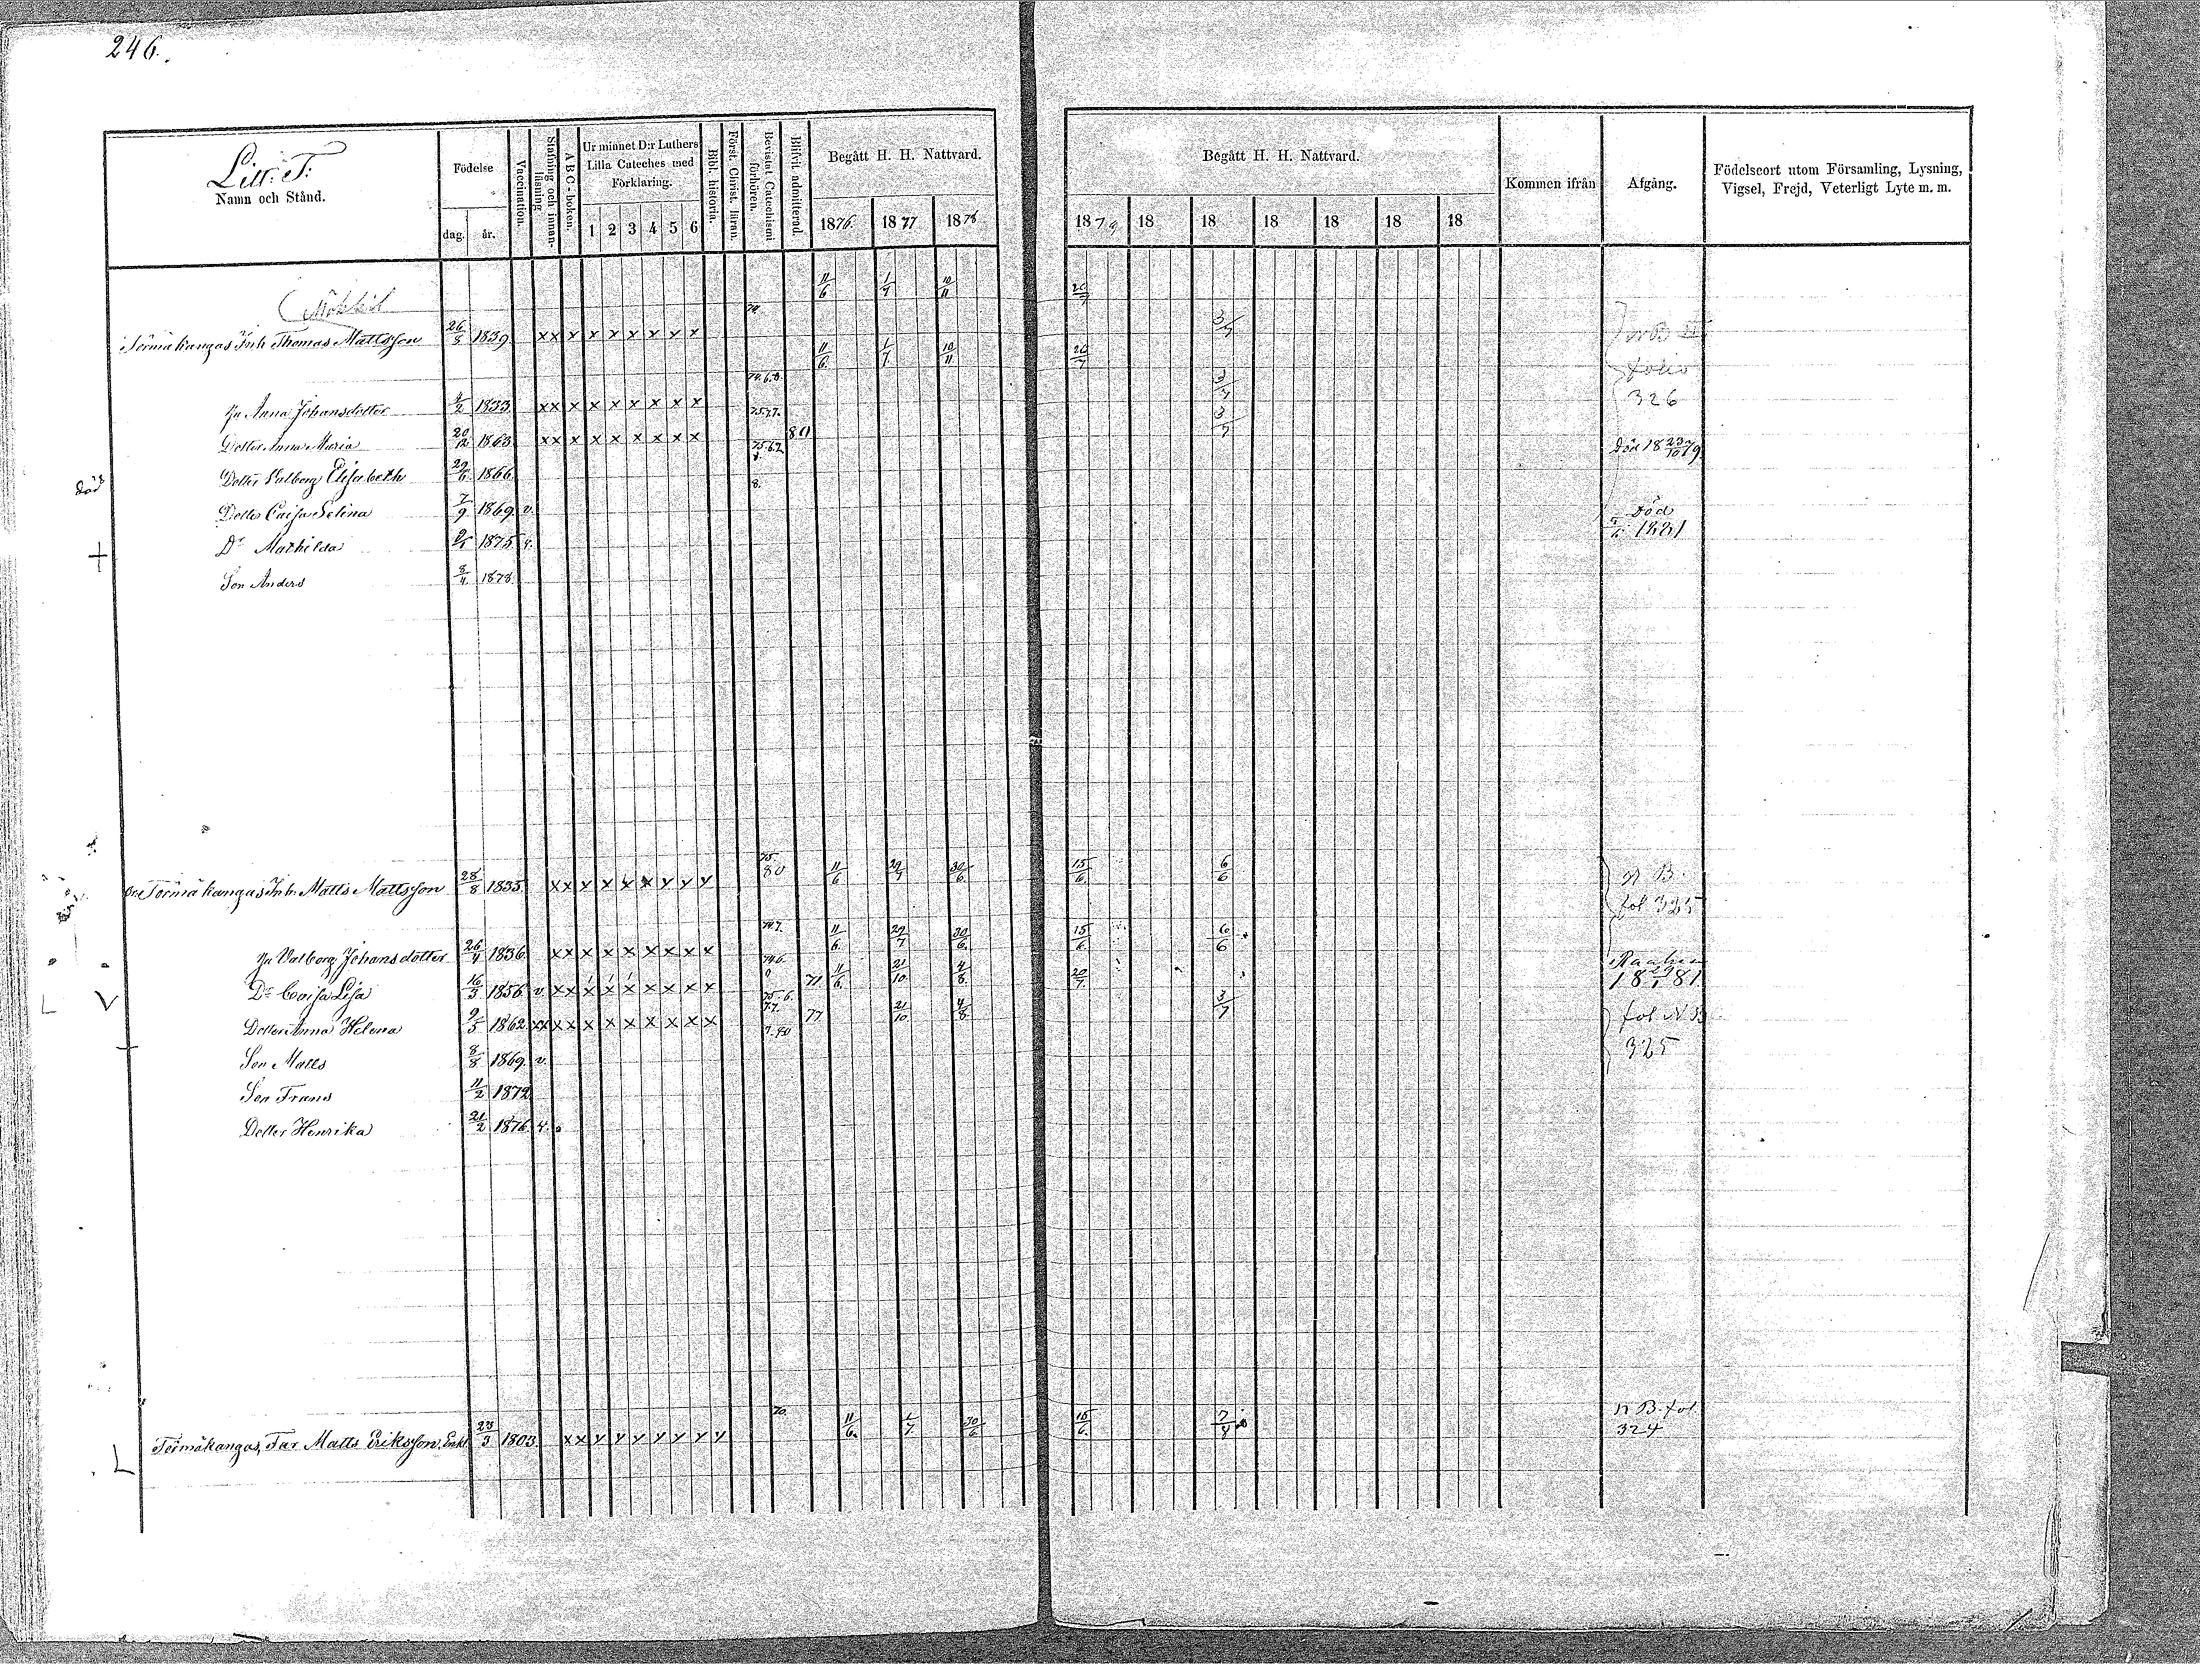 246.
Litt: T:
Namn och Stånd.
Födelse
dag. år.
Vaccination.
Stafning och innanläsning
A B C-boken.
Ur minnet D:r Luthers Lilla Cateches med Förklaring.
1 2 3 4 5 6
Bibl. historia.
Först. Christ. läran.
Bevistat Catechismi förhören.
Blifvit admitterad.
Begått H. H. Nattvard.
1876. 1877 1878
Begått H. H. Nattvard.
1879 18 18 18 18 18 18
Kommen ifrån
Afgång.
Födelseort utom Församling, Lysning, Vigsel, Frejd, Veterligt Lyte m. m.
11/6 1/7 10/11 20/7
Törmäkangas Inh. Thomas Mattsson 26/5 1839 x x x x x x x x x 3/7
11/6. 1/7. 10/11 26/7
folio
Hu Anna Johansdotter 4/2 1833 x x x x x x x x x 3/7 326
Dotter Anna Maria 20/12 1863 x x x x x x x x x 80 3/7
död Dotter Valborg Elisabeth 29/6 1866 Död 18 23/10 79
Dotter Caisa Selina 7/9 1869. v.
+ Dr Mathilda 1875 Död 1881
Son Anders 8/4 1878
Törmäkangas Inh. Matts Mattsson 28/8 1835. x x x x x x y y y 75. 80 11/6 29/7 30/6. 15/6. 6/6 n B. fol 325
Hu Valborg Johansdotter 26/4 1836. x x x x x x x x x 11/6. 29/7 30/6. 15/6. 6/6
Dr Caisa Lisa 16/3 1856 v. x x x x x x x x x 71 11/6. 21/10 4/8. 20/7. Raahen 1881
Dotter Anna Helena 9/5 1862 xx x x x x x x x x 77 21/10 4/8 3/7 fol. N B 325
Son Matts 8/8 1869. v.
Son Frans 11/2 1872
Dotter Henrika 21/2 1876. v.
Törmäkangas, Far Matts Eriksson, Enkl. 23/3 1803 x x y y y y y y y 11/6. 1/7. 30/6. 15/6. n B. fol. 324